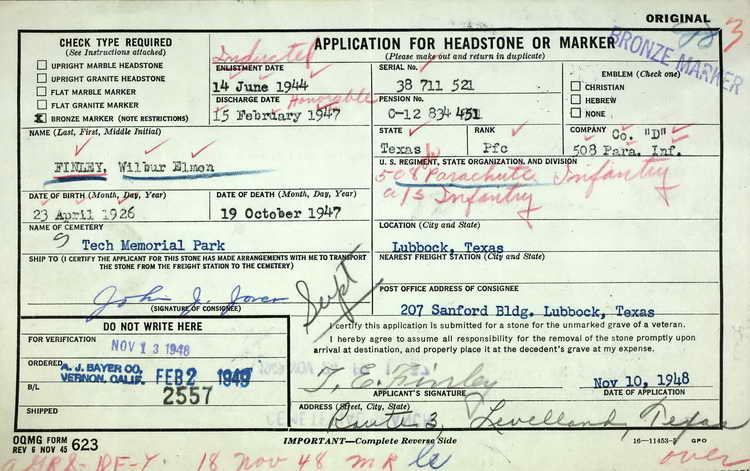 ORIGINAL
3
BRONZE MARKER
CHECK TYPE REQUIRED
(See Instructions attached)
UPRIGHT MARBLE HEADSTONE
UPRIGHT GRANITE HEADSTONE
FLAT MARBLE MARKER
FLAT GRANITE MARKER
X BRONZE MARKER (NOTE RESTRICTIONS)
APPLICATION FOR HEADSTONE OR MARKER
(Please make out and return in duplicate)
Inducted
ENLISTMENT DATE
14 June 1944
DISCHARGE DATE
Honorable
15 February 1947
SERIAL No.
38 711 521
PENSION No.
C-12 834 451
EMBLEM (Check one)
CHRISTIAN
HEBREW
NONE
STATE
Texas
RANK
Pfc
COMPANY
Co. "D"
508 Para. Inf.
NAME (Last, First, Middle Initial)
FINLEY, Wilbur Elmon
U. S. REGIMENT, STATE ORGANIZATION, AND DIVISION
508 Parachute Infantry
a/s Infantry
DATE OF BIRTH (Month, Day, Year)
23 April 1926
DATE OF DEATH (Month, Day, Year)
19 October 1947
NAME OF CEMETERY
Tech Memorial Park
LOCATION (City and State)
Lubbock, Texas
SHIP TO (I CERTIFY THE APPLICANT FOR THIS STONE HAS MADE ARRANGEMENTS WITH ME TO TRANSPORT
THE STONE FROM THE FREIGHT STATION TO THE CEMETERY)
NEAREST FREIGHT STATION (City and State)
John J.
(SIGNATURE OF CONSIGNEE)
Supt
POST OFFICE ADDRESS OF CONSIGNEE
207 Sanford Bldg. Lubbock, Texas
DO NOT WRITE HERE
FOR VERIFICATION
NOV 13 1948
ORDERED
A. J. BAYER CO.
VERNON, CALIF.
FEB 2 1949
B/L
2557
SHIPPED
I certify this application is submitted for a stone for the unmarked grave of a veteran.
I hereby agree to assume all responsibility for the removal of the stone promptly upon
arrival at destination, and properly place it at the decedent's grave at my expense.
T. E. Finley
APPLICANT'S SIGNATURE
Nov 10, 1948
DATE OF APPLICATION
ADDRESS (Street, City, State)
Route 3, Levelland, Texas
OQMG FORM
REV 6 NOV 45 623
IMPORTANT—Complete Reverse Side
16—11453-5 GPO
18 Nov 48 MR
over